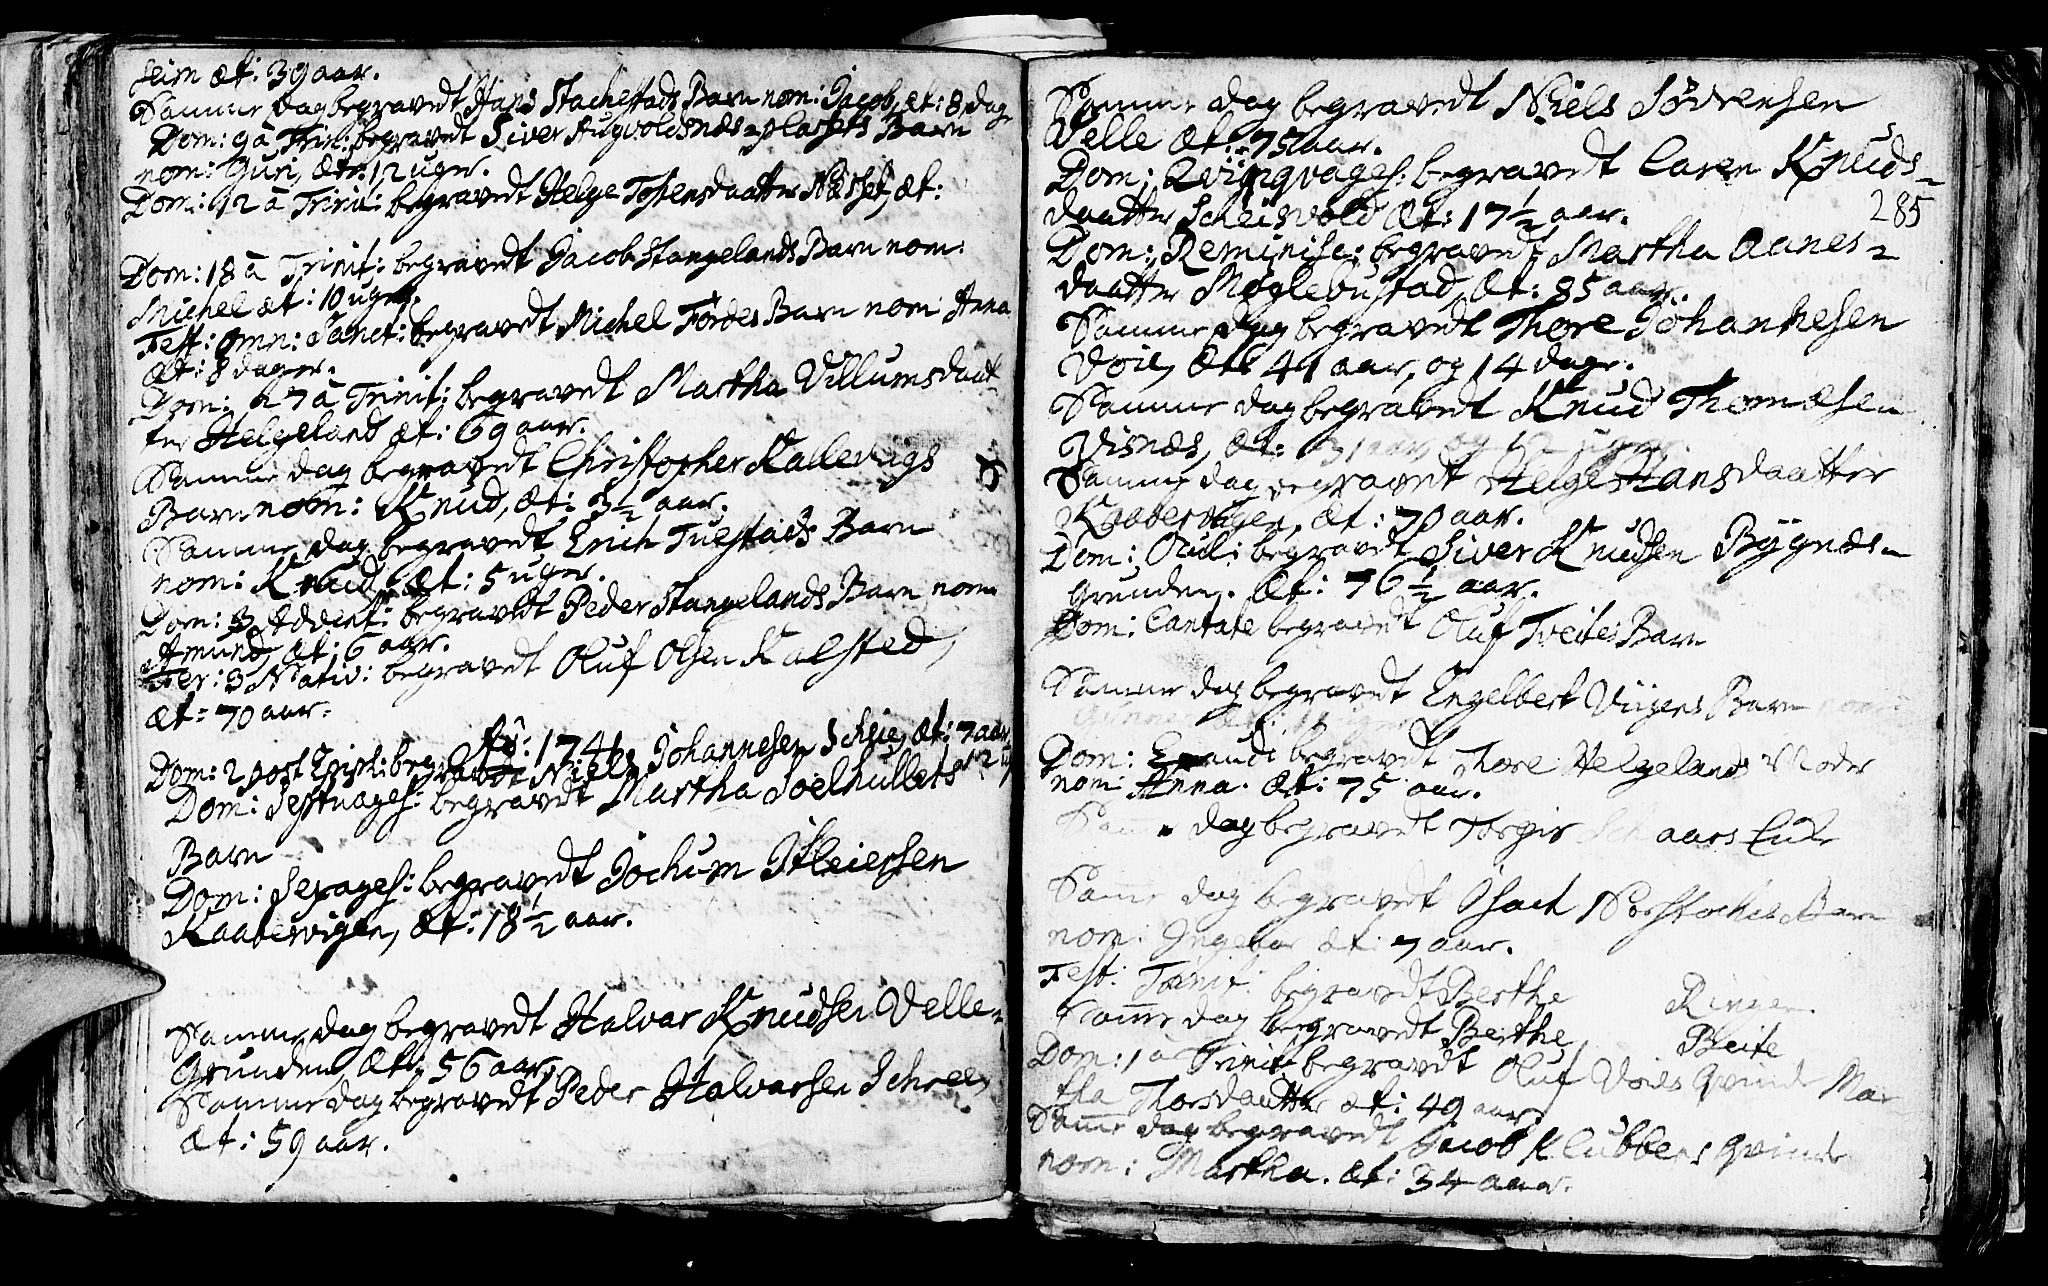 heim æt: 39 aar.
Samme dag begravedt Hans Stachestads Barn nom: Jacob, æt: 8 dage
Dom: 9 à Trin: begravedt Siver Augvoldsnæs-plasets Barn
nom: Guri, æt: 12 uger.
Dom: 12 à Trinit: begravedt Helge Tostensdaatter Næsset, æt:
Dom: 18 à Trinit: begravedt Jacob Stangelands Barn nom:
Michel æt: 10 uger.
Fest: Omn: Sanct: begravedt Michel Førdes Barn nom: Anna
æt: 8 dager.
Dom: 27 à Trinit: begravedt Martha Villumsdaat-
ter Helgeland æt: 69 aar.
Samme dag begravedt Christopher Kallevigs
Barn nom: Knud, æt: 3½ aar.
Samme dag begravedt Erich Tuestads Barn
nom: Knud, æt: 5 uger.
Dom: 3 Advent: begravedt Peder Stangelands Barn nom:
Amund, æt: 6 aar.
Fer: 3 Nativ: begravedt Oluf Olsen Kalsted,
æt: 70 aar.
Aõ: 1746
Dom: 2 post Epiph: begravedt Niels Johannesen Scheie, æt: 7 aar
Dom: Septuages: begravedt Martha Soelhullets
Barn
Dom: Sexages: begravedt Jochum Itleiersen
Kaabervigen, æt: 18½ aar.
Samme dag begravedt Halvar Knudsen Velle-
Grunden, æt: 56 aar.
Samme dag begravedt Peder Halvarsen Schree,
æt: 59 aar.
Samme dag begravedt Niels Sørrensen
Velle æt: 75 aar.
Dom: Qvinqvages: begravedt Caren Knuds-
daatter Scheisvold æt: 17½ aar.
285
Dom: Reminisc: begravedt Martha Aanes-
daatter Møglebustad, æt: 85 aar.
Samme dag begravedt Thore Johannesen
Voie, æt: 41 aar, og 14 dage.
Samme dag begravedt Knud Thomæsen
Visnæs, æt: 31 aar, og 12 uger.
Samme dag begravedt Helge Hansdaatter
Kaabervigen, æt: 70 aar.
Dom: Oculi begravedt Siver Knudsen Bÿgnæs-
grunden. æt: 76½ aar.
Dom: Cantate begravedt Oluf Tveites Barn
Samme dag begravedt Engelbert Viigens Barn nom:
Gunner
Dom: Exaudi begravedt Thore Helgelands Moder
nom: Anna. æt: 75 aar.
Samme dag begravedt Torgir
Samme dag begravedt Isach Norstoches Barn
nom: Ingebor æt: 7 aar.
Fest: Trinit: begravedt Berthe Ringen
Samme dag begravedt Berthe Bleite
Dom: 1 à Trinit: begravedt Oluf Voies Qvinde Mar-
tha Thorsdaatter æt: 49 aar.
Samme dag begravedt Jacob Klubbens Qvinde
nom: Martha. æt: 34 aar.